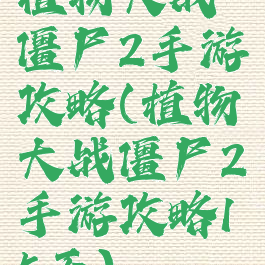 植物大战
僵尸2手游
攻略(植物
大战僵尸2
手游攻略1
5天)